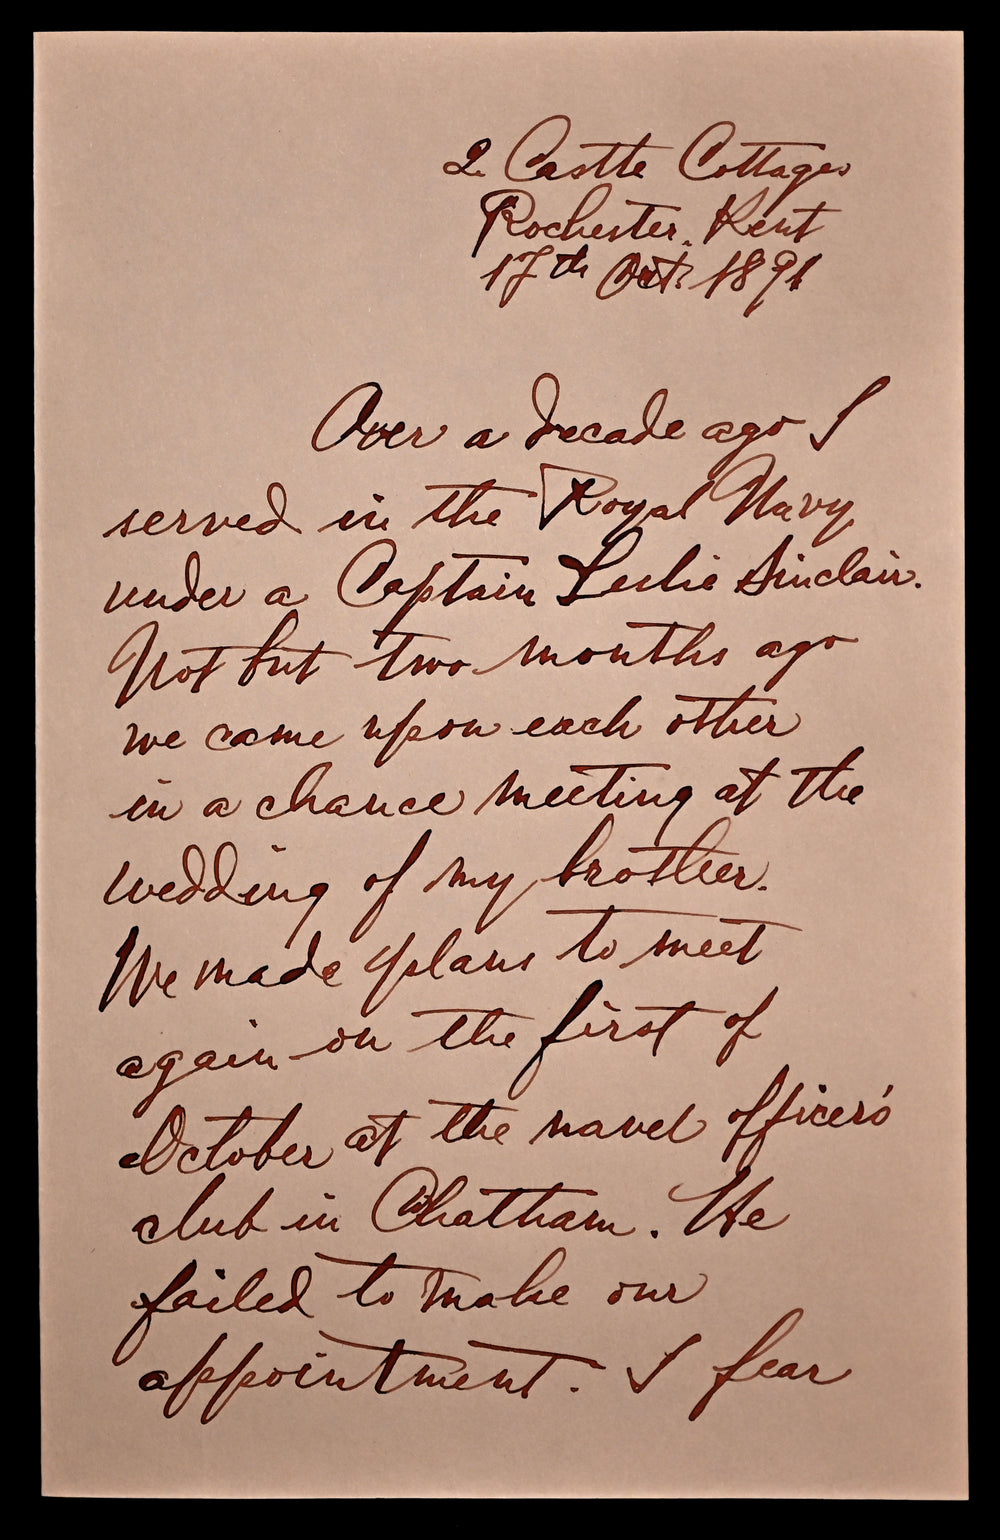 2. Castle Cottages
Rochester, Kent
17th Oct. 1891
Over a decade ago I
served in the Royal Navy
under a Captain Leslie Sinclair.
Not but two months ago
we came upon each other
in a chance meeting at the
wedding of my brother.
We made plans to meet
again on the first of
October at the navel officer's
club in Chatham. He
failed to make our
appointment. I fear